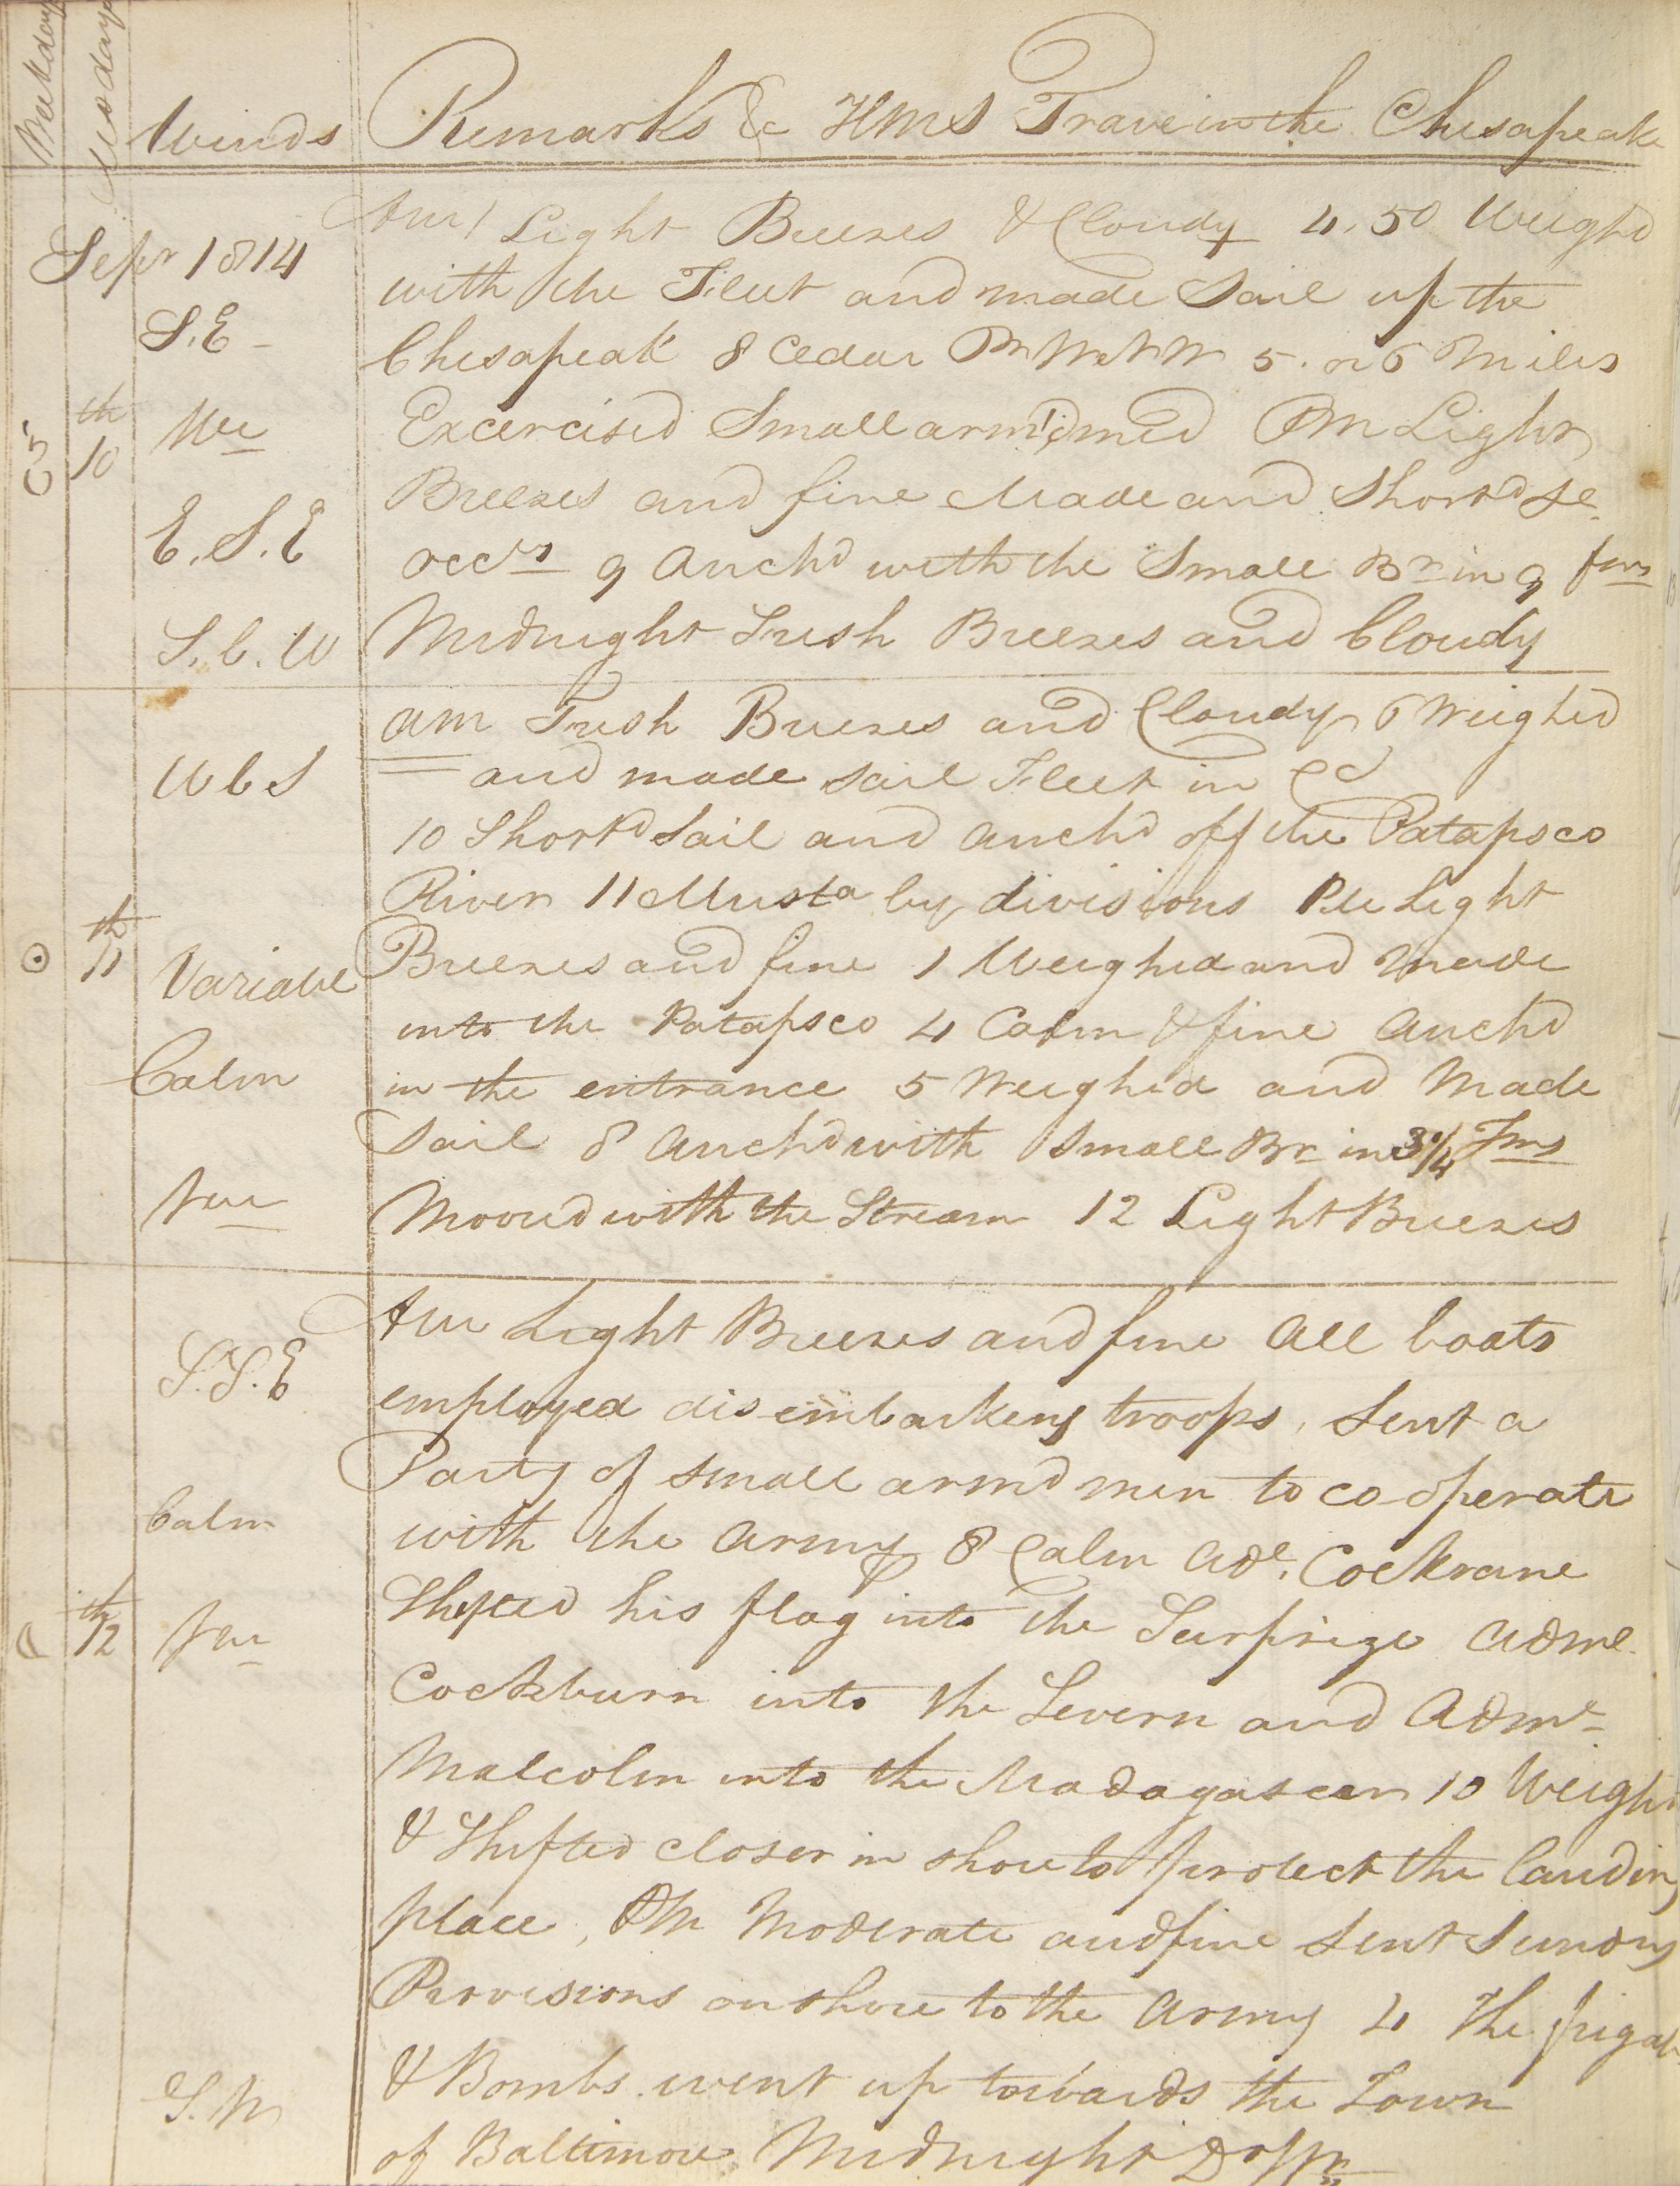 Week days Mo days Winds Remarks &c HMS Trave in the Chesapeake
Sepr 1814
AM Light Breezes & Cloudy 4.50 Weighd
with the Fleet and made Sail up the
S.E Chesapeak 8 Cedar Pt WNW 5 or 6 Miles
♄ 10th Excercised Small armd men PM Light
Breezes and fine Made and Shortd Sl
E.S.E occly 9 Anchd with the Small Br in 9 fms
S.b.W Midnight Fresh Breezes and Cloudy
am Fresh Breezes and Cloudy 6 Weighed
W b S and made sail Fleet in Co
10 Shortd Sail and anchd off the Patapsco
River 11 Mustd by divisions PM Light
☉ 11th Variable Breezes and fine 1 Weighed and made
into the Patapsco 4 Calm & fine Anchd
Calm in the entrance 5 Weighed and Made
Sail 8 Anchd with Small Br in 3 1/4 Fms
Moored with the Stream 12 Light Breezes
AM Light Breezes and fine All boats
S.S.E employed disembarking troops, Sent a
Party of small armd men to co-operate
Calm with the Army 8 Calm Adl. Cockrane
☾ 12th Shifted his flag into the Surprize Adml
Cockburn into the Severn and Adml
Malcolm into the Madagascar 10 Weighd
& Shifted closer in shore to protect the landing
place, PM Moderate and fine Sent Sundry
Provisions on shore to the Army 4 The frigates
S.W & Bombs went up towards the Town
of Baltimore Midnight Do Wr